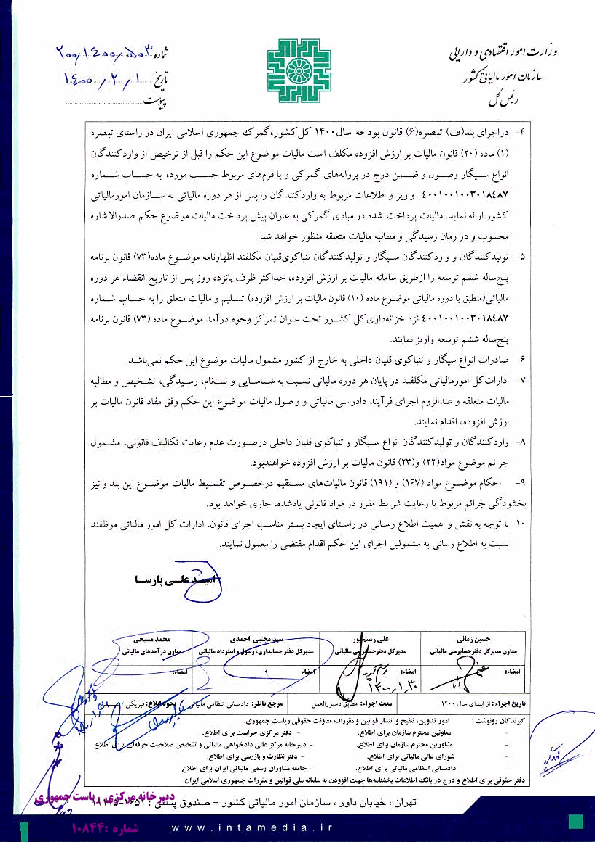 وزارت امور اقتصادی و دارایی
سازمان امور مالیاتی کشور
رئیس کل
شماره ۲۰۰/۱۴۰۰/۵۰۳
تاریخ ۱۴۰۰/۲/۱
پیوست
۴- در اجرای بند(ف) تبصره(۶) قانون بودجه سال۱۴۰۰ کل کشور، گمرک جمهوری اسلامی ایران در راستای تبصره
(۱) ماده (۲۰) قانون مالیات بر ارزش افزوده مکلف است مالیات موضوع این حکم را قبل از ترخیص از واردکنندگان
انواع سیگار وصول و ضمن درج در پروانه‌های گمرکی و یا فرم‌های مربوط حسب مورد، به حساب شماره
۴۰۰۱۰۰۱۰۰۳۰۱۸۴۸۷ واریز و اطلاعات مربوط به واردکنندگان را پس از هر دوره مالیاتی به سازمان امورمالیاتی
کشور ارائه نماید. مالیات پرداخت شده در مبادی گمرکی به عنوان پیش پرداخت مالیات موضوع حکم صدرالاشاره
محسوب و در زمان رسیدگی و مطالبه مالیات متعلقه منظور خواهد شد.
۵- تولیدکنندگان و واردکنندگان سیگار و تولیدکنندگان تنباکوی قلیان مکلفند اظهارنامه موضوع ماده(۷۳) قانون برنامه
پنج‌ساله ششم توسعه را ازطریق سامانه مالیات بر ارزش افزوده، حداکثر ظرف پانزده روز پس از تاریخ انقضاء هر دوره
مالیاتی(منطبق با دوره مالیاتی موضوع ماده (۱۰) قانون مالیات بر ارزش افزوده) تسلیم و مالیات متعلق را به حساب شماره
۴۰۰۱۰۰۱۰۰۳۰۱۸۴۸۷ نزد خزانه‌داری کل کشور تحت عنوان تمرکز وجوه درآمد موضوع ماده (۷۳) قانون برنامه
پنج‌ساله ششم توسعه واریز نمایند.
۶- صادرات انواع سیگار و تنباکوی قلیان داخلی به خارج از کشور مشمول مالیات موضوع این حکم نمی‌باشد.
۷- ادارات کل امورمالیاتی مکلفند در پایان هر دوره مالیاتی نسبت به شناسایی و ثبت‌نام، رسیدگی، تشخیص و مطالبه
مالیات متعلقه و عندالزوم اجرای فرآیند دادرسی مالیاتی و وصول مالیات موضوع این حکم وفق مفاد قانون مالیات بر
ارزش افزوده، اقدام نمایند.
۸- واردکنندگان و تولیدکنندگان انواع سیگار و تنباکوی قلیان داخلی درصورت عدم رعایت تکالیف قانونی، مشمول
جرائم موضوع مواد(۲۲) و(۲۳) قانون مالیات بر ارزش افزوده خواهندبود.
۹- احکام موضوع مواد (۱۶۷) و (۱۹۱) قانون مالیات‌های مستقیم درخصوص تقسیط مالیات موضوع این بند و نیز
بخشودگی جرائم مربوط با رعایت شرایط مقرر در مواد قانونی یادشده، جاری خواهد بود.
۱۰- با توجه به نقش و اهمیت اطلاع رسانی در راستای ایجاد بستر مناسب اجرای قانون، ادارات کل امور مالیاتی موظفند
نسبت به اطلاع رسانی به مشمولین اجرای این حکم اقدام مقتضی را معمول نمایند.
امید علی پارسا
حسین زمانی علی رستم‌پور سید مجتبی احمدی محمد مسیحی
معاون مدیر کل دفتر حسابرسی مالیاتی مدیرکل دفتر حسابرسی مالیاتی مدیرکل دفتر حسابداری، وصول و استرداد مالیاتی معاون درآمدهای مالیاتی
امضاء: امضاء: امضاء: امضاء:
۱۴۰۰/۱/۳۰
تاریخ اجرا: از ابتدای سال ۱۴۰۰ مدت اجرا: مطابق دستورالعمل مرجع ناظر: دادستانی انتظامی مالیاتی نحوه ابلاغ: فیزیکی
گیرندگان رونوشت امور تدوین، تنقیح و انتشار قوانین و مقررات معاونت حقوقی ریاست جمهوری
- معاونین محترم سازمان برای اطلاع. - دفتر مرکزی حراست برای اطلاع.
- مشاورین محترم سازمان برای اطلاع. - دبیرخانه مرکز عالی دادخواهی مالیاتی و تشخیص صلاحیت حرفه‌ای برای اطلاع
- شورای عالی مالیاتی برای اطلاع. - دفتر نظارت و بازرسی برای اطلاع
- دادستانی انتظامی مالیاتی برای اطلاع. - جامعه مشاوران رسمی مالیاتی ایران برای اطلاع
دفتر حقوقی برای اطلاع و درج در بانک اطلاعات بخشنامه‌ها جهت افزودن به سامانه ملی قوانین و مقررات جمهوری اسلامی ایران
تهران، خیابان داور، سازمان امور مالیاتی کشور - صندوق پستی
دبیرخانه مرکزی ریاست جمهوری
شماره : ۱۰۸۴۴
www.intamedia.ir